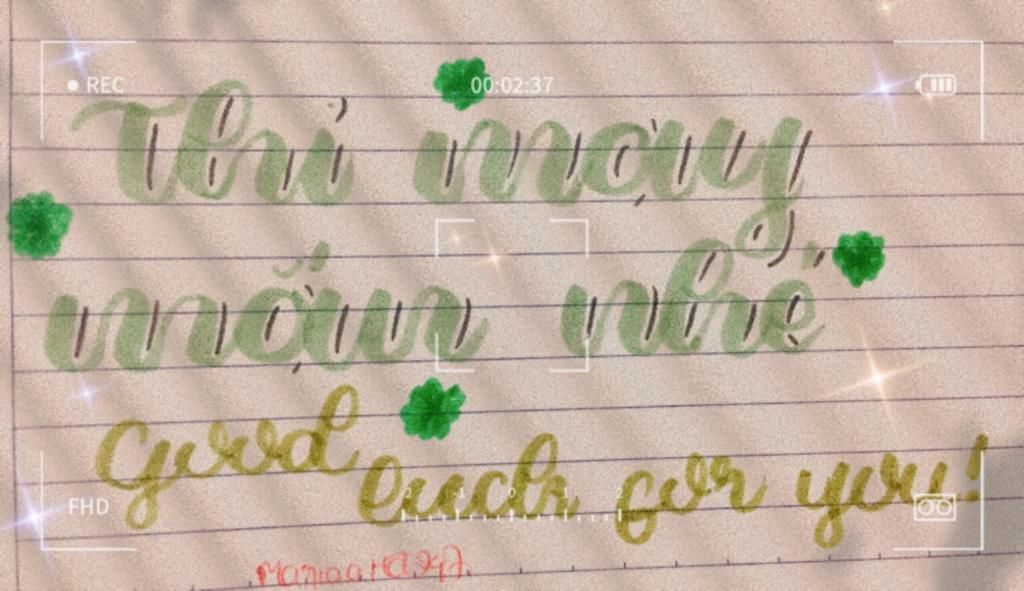 REC 00:02:37
Thi mợy
mắn nhé
good
luck for you!
-2 -1 0 1 2
FHD